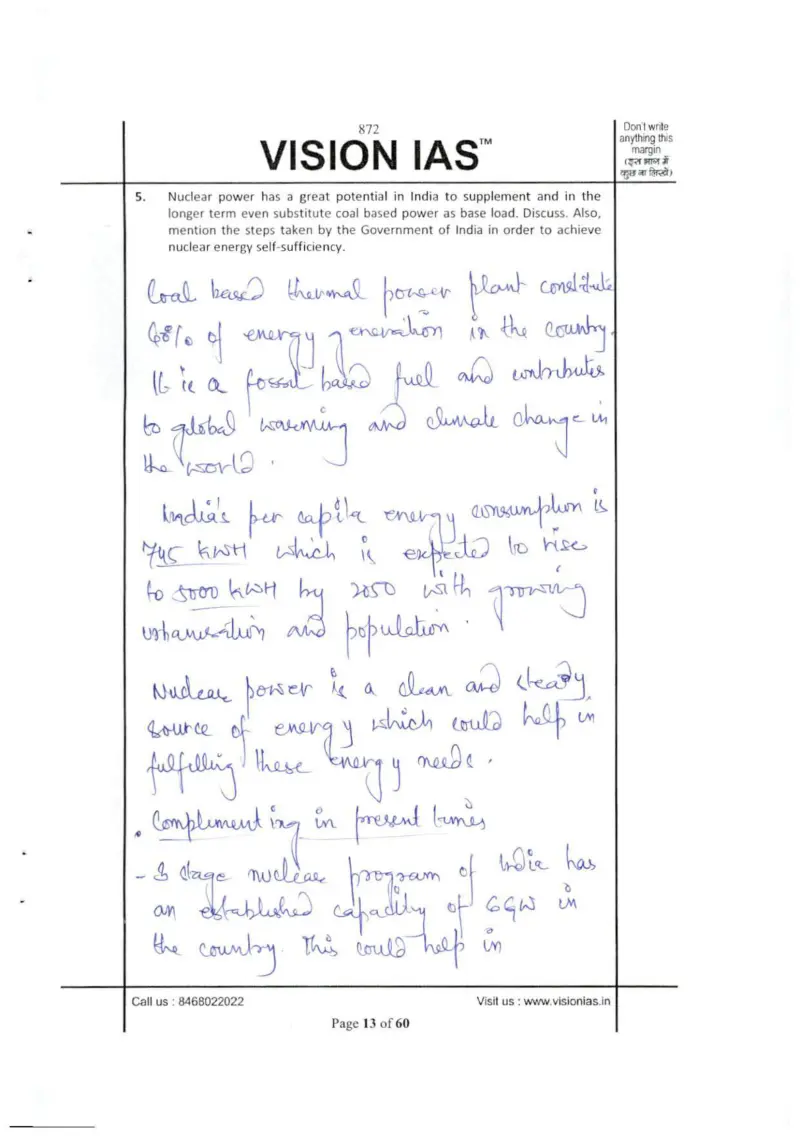 872
VISION IAS™
Don't write
anything this
margin
(इस भाग में
कुछ ना लिखें)
5. Nuclear power has a great potential in India to supplement and in the
longer term even substitute coal based power as base load. Discuss. Also,
mention the steps taken by the Government of India in order to achieve
nuclear energy self-sufficiency.
Coal based thermal power plant constitute
68% of energy generation in the country.
It is a fossil based fuel and contributes
to global warming and climate change in
the world.
India's per capita energy consumption is
745 kWH which is expected to rise
to 5000 kWH by 2050 with growing
urbanisation and population.
Nuclear power is a clean and steady
source of energy which could help in
fulfilling these energy needs.
• Complimenting in present times
- 3 stage nuclear program of India has
an established capacity of 6GW in
the country. This could help in
Call us : 8468022022
Visit us : www.visionias.in
Page 13 of 60